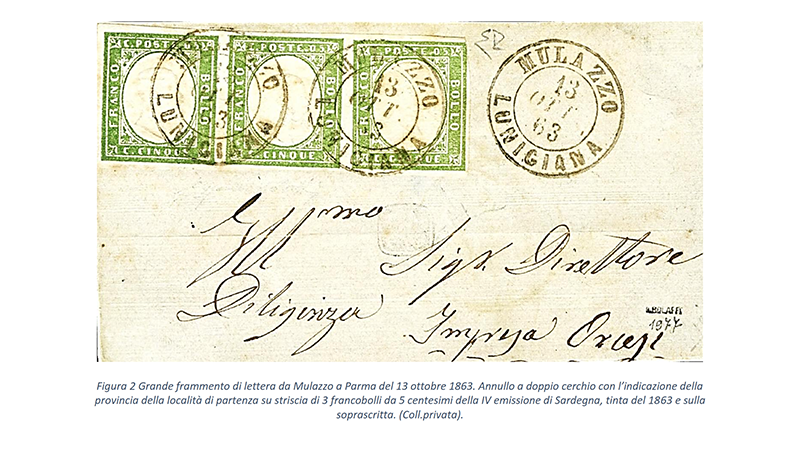 C. POSTE. 05
FRANCO
BOLLO
C. CINQUE
C. POSTE. 05
BOLLO
CINQUE
C. POSTE. 05
BOLLO
MULAZZO
13
OTT.
63
LUNIGIANA
MULAZZO
13
OTT.
63
LUNIGIANA
Ill.mo
Sigr. Direttore
Diligenza Impresa Orcesi
A.BOLAFFI
1977
Figura 2 Grande frammento di lettera da Mulazzo a Parma del 13 ottobre 1863. Annullo a doppio cerchio con l’indicazione della
provincia della località di partenza su striscia di 3 francobolli da 5 centesimi della IV emissione di Sardegna, tinta del 1863 e sulla
soprascritta. (Coll.privata).